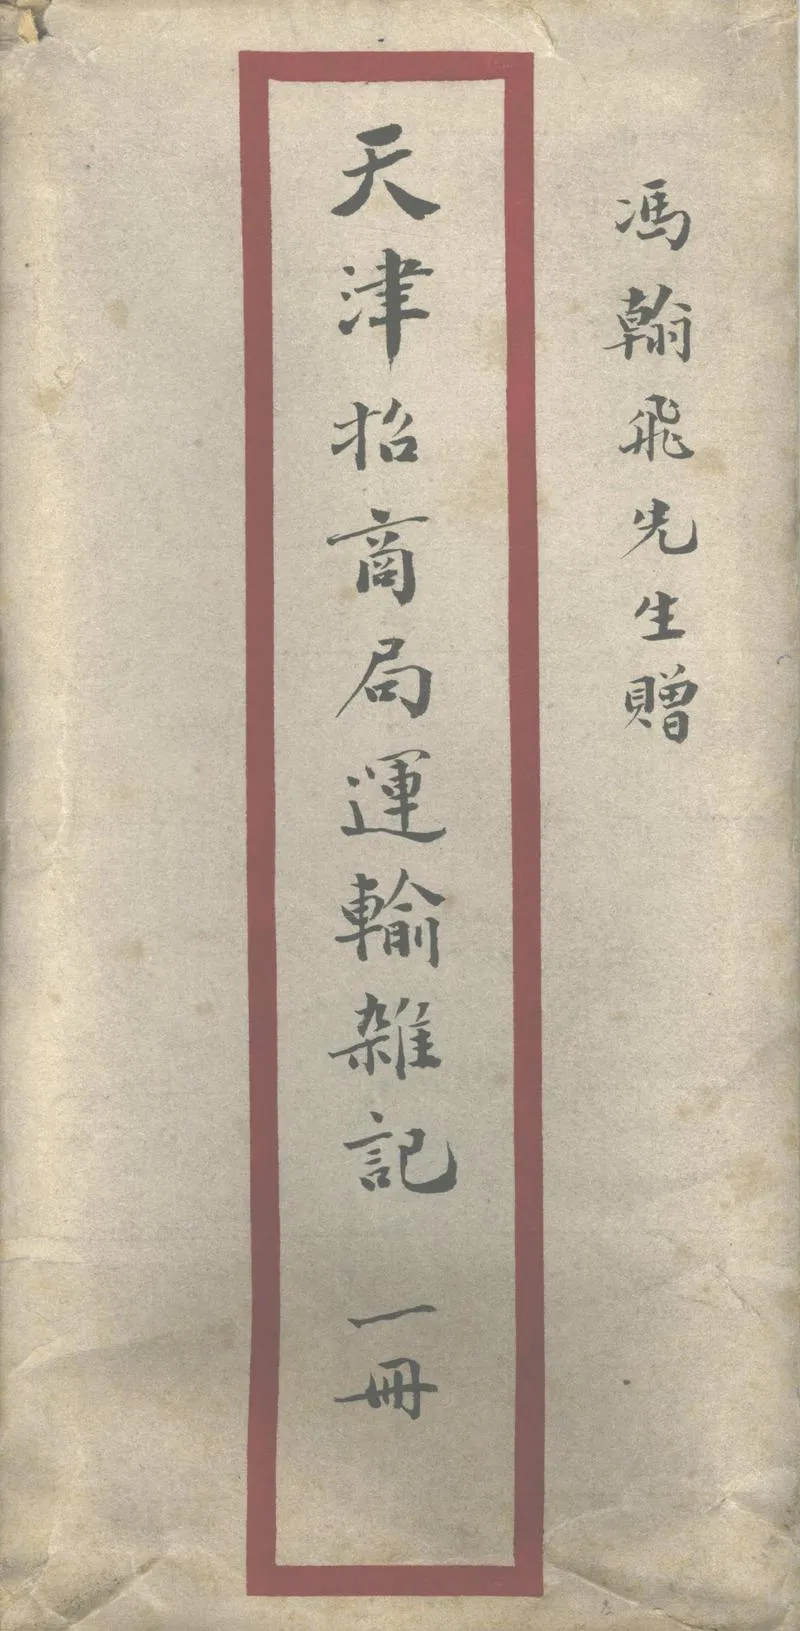 馮翰飛先生贈
天津招商局運輸雜記 一冊